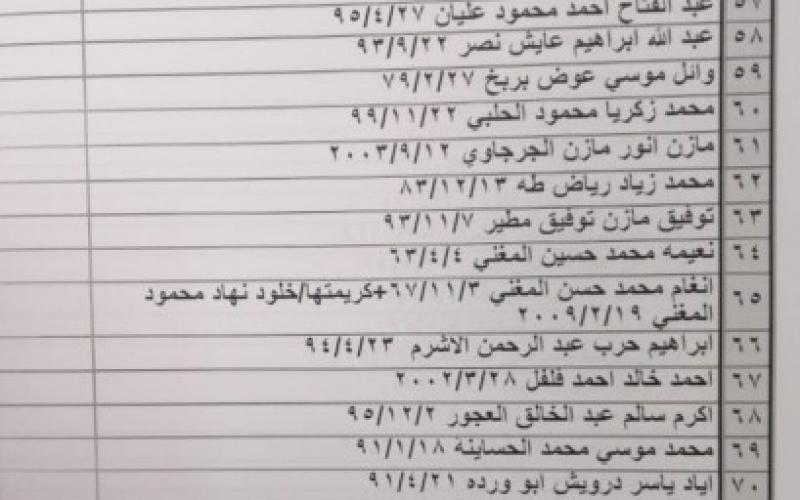 ٥٧ عبد الفتاح احمد محمود عليان ٩٥/٤/٢٧
٥٨ عبد الله ابراهيم عايش نصر ٩٣/٩/٢٢
٥٩ وائل موسي عوض بربخ ٧٩/٢/٢٧
٦٠ محمد زكريا محمود الحلبي ٩٩/١١/٢٢
٦١ مازن انور مازن الجرجاوي ٢٠٠٣/٩/١٢
٦٢ محمد زياد رياض طه ٨٣/١٢/١٣
٦٣ توفيق مازن توفيق مطير ٩٣/١١/٧
٦٤ نعيمه محمد حسين المغني ٦٣/٤/٤
٦٥ انغام محمد حسن المغني ٦٧/١١/٣+كريمتها/خلود نهاد محمود
المغني ٢٠٠٩/٢/١٩
٦٦ ابراهيم حرب عبد الرحمن الاشرم ٩٤/٤/٢٣
٦٧ احمد خالد احمد فلفل ٢٠٠٢/٣/٢٨
٦٨ اكرم سالم عبد الخالق العجور ٩٥/١٢/٢
٦٩ محمد موسي محمد الحساينه ٩١/١/١٨
٧٠ اياد ياسر درويش ابو ورده ٩١/٤/٢١